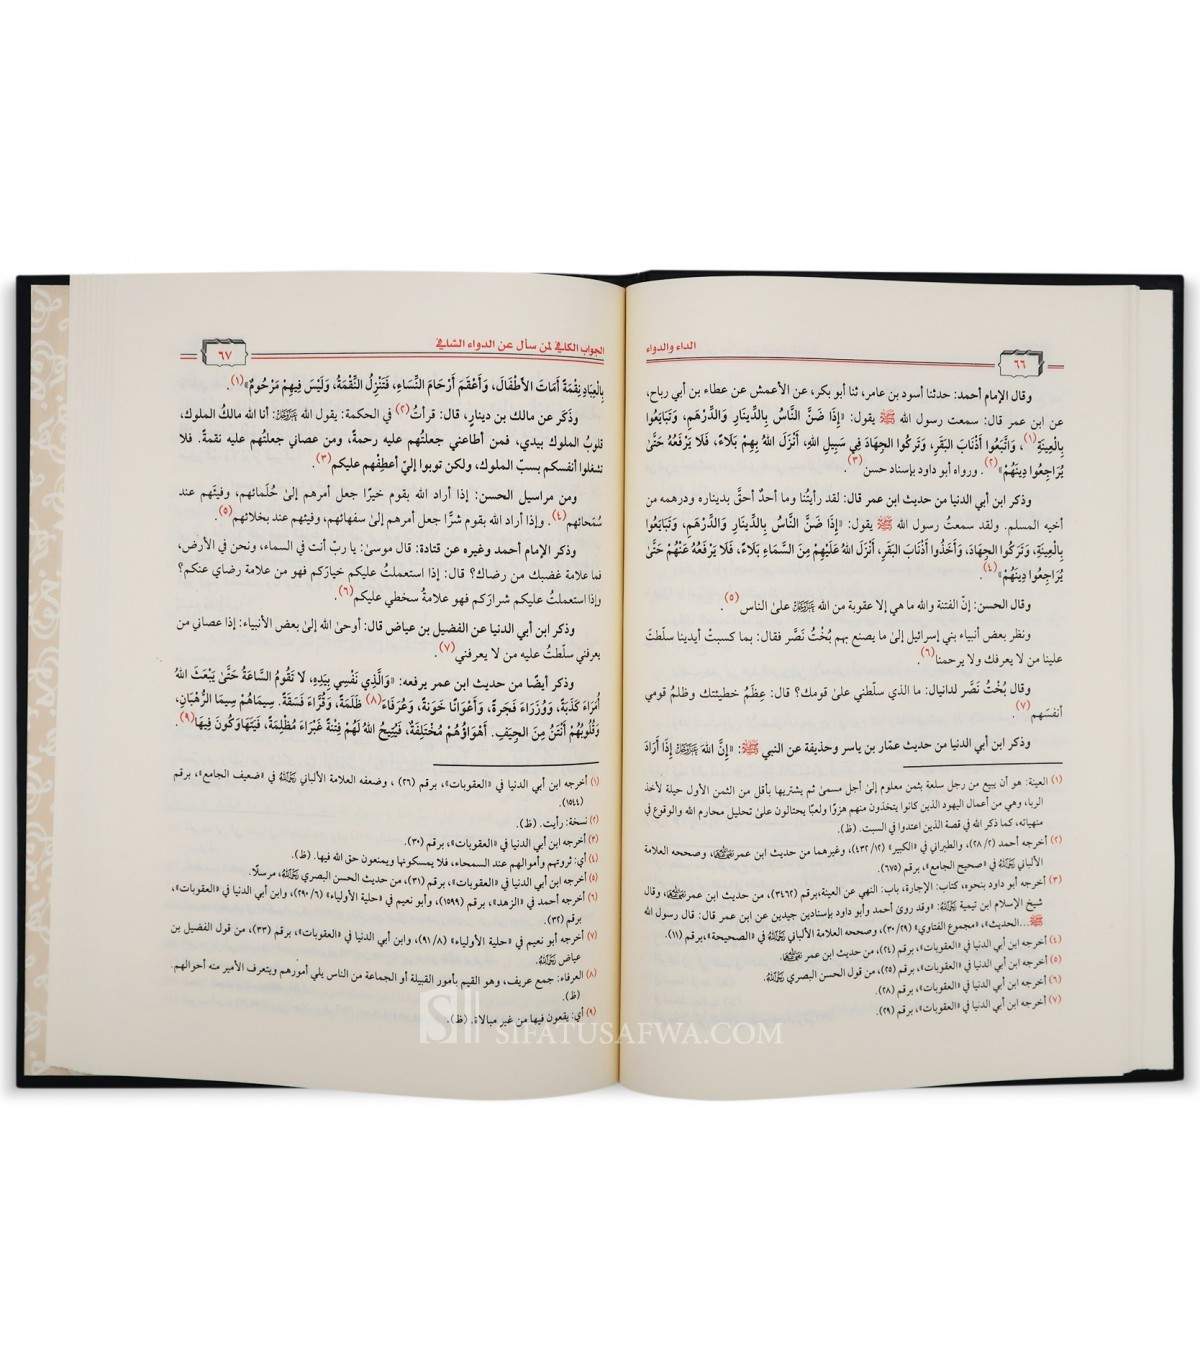 الداء والدواء
٦٦
وقال الإمام أحمد: حدثنا أسود بن عامر، ثنا أبو بكر، عن الأعمش عن عطاء بن أبي رباح،
عن ابن عمر قال: سمعت رسول الله ﷺ يقول: «إِذَا ضَنَّ النَّاسُ بِالدِّينَارِ وَالدِّرْهَمِ، وَتَبَايَعُوا
بِالْعِينَةِ(١)، وَاتَّبَعُوا أَذْنَابَ البَقَرِ، وَتَرَكُوا الجِهَادَ فِي سَبِيلِ اللهِ، أَنْزَلَ اللهُ بِهِمْ بَلَاءً، فَلَا يَرْفَعُهُ حَتَّىٰ
يُرَاجِعُوا دِينَهُمْ»(٢). ورواه أبو داود بإسناد حسن(٣).
وذكر ابن أبي الدنيا من حديث ابن عمر قال: لقد رأيتُنا وما أحدٌ أحقَّ بديناره ودرهمه من
أخيه المسلم. ولقد سمعتُ رسول الله ﷺ يقول: «إِذَا ضَنَّ النَّاسُ بِالدِّينَارِ وَالدِّرْهَمِ، وَتَبَايَعُوا
بِالْعِينَةِ، وَتَرَكُوا الجِهَادَ، وَأَخَذُوا أَذْنَابَ البَقَرِ، أَنْزَلَ اللهُ عَلَيْهِمْ مِنَ السَّمَاءِ بَلَاءً، فَلَا يَرْفَعُهُ عَنْهُمْ حَتَّىٰ
يُرَاجِعُوا دِينَهُمْ»(٤).
وقال الحسن: إنّ الفتنة والله ما هي إلا عقوبة من الله ﷿ علىٰ الناس(٥).
ونظر بعض أنبياء بني إسرائيل إلىٰ ما يصنع بهم بُخْتُ نَصَّر فقال: بما كسبتْ أيدينا سلّطتَ
علينا من لا يعرفك ولا يرحمنا(٦).
وقال بُخْتُ نَصَّر لدانيال: ما الذي سلّطني علىٰ قومك؟ قال: عِظَمُ خطيئتك وظلمُ قومي
أنفسَهم(٧).
وذكر ابن أبي الدنيا من حديث عمّار بن ياسر وحذيفة عن النبي ﷺ: «إِنَّ اللهَ ﷿ إِذَا أَرَادَ
(١) العينة: هو أن يبيع من رجل سلعة بثمن معلوم إلىٰ أجل مسمىٰ ثم يشتريها بأقل من الثمن الأول حيلة لأخذ
الربا، وهي من أعمال اليهود الذين كانوا يتخذون منهم هزوًا ولعبًا يحتالون علىٰ تحليل محارم الله والوقوع في
منهياته، كما ذكر الله في قصة الذين اعتدوا في السبت. (ظ).
(٢) أخرجه أحمد (٢٨/٢)، والطبراني في «الكبير» (٤٣٢/١٢)، وغيرهما من حديث ابن عمر، وصححه العلامة
الألباني في «صحيح الجامع»، برقم (٦٧٥)
(٣) أخرجه أبو داود بنحوه، كتاب: الإجارة، باب: النهي عن العينة،برقم (٣٤٦٢)، من حديث ابن عمر، وقال
شيخ الإسلام ابن تيمية: «وقد روىٰ أحمد وأبو داود بإسنادين جيدين عن ابن عمر قال: قال رسول الله
ﷺ...الحديث»، «مجموع الفتاوي» (٣٠/٢٩)، وصححه العلامة الألباني في «الصحيحة»،برقم (١١).
(٤) أخرجه ابن أبي الدنيا في «العقوبات»، برقم (٢٤)، من حديث ابن عمر.
(٥) أخرجه ابن أبي الدنيا في «العقوبات»، برقم (٢٥)، من قول الحسن البصري.
(٦) أخرجه ابن أبي الدنيا في «العقوبات»، برقم (٢٨).
(٧) أخرجه ابن أبي الدنيا في «العقوبات»، برقم (٢٩).
الجواب الكافي لمن سأل عن الدواء الشافي
٦٧
بِالْعِبَادِ نِقْمَةً أَمَاتَ الأَطْفَالَ، وَأَعْقَمَ أَرْحَامَ النِّسَاءِ، فَتَنْزِلُ النِّقْمَةُ، وَلَيْسَ فِيهِمْ مَرْحُومٌ»(١).
وذَكَر عن مالك بن دينارٍ، قال: قرأتُ(٢) في الحكمة: يقول الله ﷿: أنا الله مالكُ الملوك،
قلوبُ الملوك بيدي، فمن أطاعني جعلتُهم عليه رحمةً، ومن عصاني جعلتُهم عليه نقمةً. فلا
تشغلوا أنفسكم بسبّ الملوك، ولكن توبوا إليّ أعطِفْهم عليكم(٣).
ومن مراسيل الحسن: إذا أراد الله بقوم خيرًا جعل أمرهم إلىٰ حُلَمائهم، وفيئَهم عند
سُمَحائهم(٤). وإذا أراد الله بقوم شرًّا جعل أمرهم إلىٰ سفهائهم، وفيئهم عند بخلائهم(٥).
وذكر الإمام أحمد وغيره عن قتادة: قال موسىٰ: يا ربّ أنت في السماء، ونحن في الأرض،
فما علامة غضبك من رضاك؟ قال: إذا استعملتُ عليكم خيارَكم فهو من علامة رضاي عنكم؟
وإذا استعملتُ عليكم شرارَكم فهو علامةُ سخطي عليكم(٦).
وذكر ابن أبي الدنيا عن الفضيل بن عياض قال: أوحىٰ اللهُ إلىٰ بعض الأنبياء: إذا عصاني من
يعرفني سلّطتُ عليه من لا يعرفني(٧).
وذكر أيضًا من حديث ابن عمر يرفعه: «وَالَّذِي نَفْسِي بِيَدِهِ، لَا تَقُومُ السَّاعَةُ حَتَّىٰ يَبْعَثَ اللهُ
أُمَرَاءَ كَذَبَةً، وَوُزَرَاءَ فَجَرةً، وَأَعْوَانًا خَوَنةً، وَعُرَفَاءَ(٨) ظَلَمَةً، وَقُرَّاءَ فَسَقَةً. سِيمَاهُمْ سِيمَا الرُّهْبَانِ،
وَقُلُوبُهُمْ أَنْتَنُ مِنَ الجِيَفِ. أَهْوَاؤُهُمْ مُخْتَلِفَةٌ، فَيُتِيحُ اللهُ لَهُمْ فِتْنَةً غَبْرَاءَ مُظْلِمَةً، فَيَتَهَاوَكُونَ فِيهَا»(٩).
(١) أخرجه ابن أبي الدنيا في «العقوبات»، برقم (٢٦) ، وضعفه العلامة الألباني في «ضعيف الجامع»، برقم
(١٥٤٤).
(٢) نسخة: رأيت. (ظ).
(٣) أخرجه ابن أبي الدنيا في «العقوبات»، برقم (٣٠).
(٤) أي: ثروتهم وأموالهم عند السمحاء، فلا يمسكونها ويمنعون حق الله فيها. (ظ).
(٥) أخرجه ابن أبي الدنيا في «العقوبات»، برقم (٣١)، من حديث الحسن البصري، مرسلًا.
(٦) أخرجه أحمد في «الزهد»، برقم (١٥٩٩)، وأبو نعيم في «حلية الأولياء» (٢٩٠/٦)، وابن أبي الدنيا في «العقوبات»،
برقم (٣٢).
(٧) أخرجه أبو نعيم في «حلية الأولياء» (٩١/٨)، وابن أبي الدنيا في «العقوبات»، برقم (٣٣)، من قول الفضيل بن
عياض.
(٨) العرفاء: جمع عريف، وهو القيم بأمور القبيلة أو الجماعة من الناس يلي أمورهم ويتعرف الأمير منه أحوالهم.
(ظ).
(٩) أي: يقعون فيها من غير مبالاة. (ظ).
SIFATUSAFWA.COM